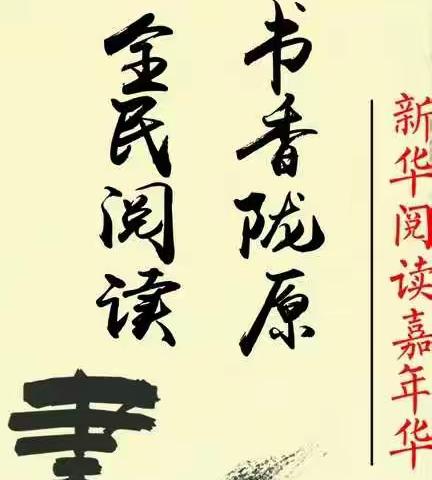 新华阅读嘉年华
书香陇原
全民阅读
書